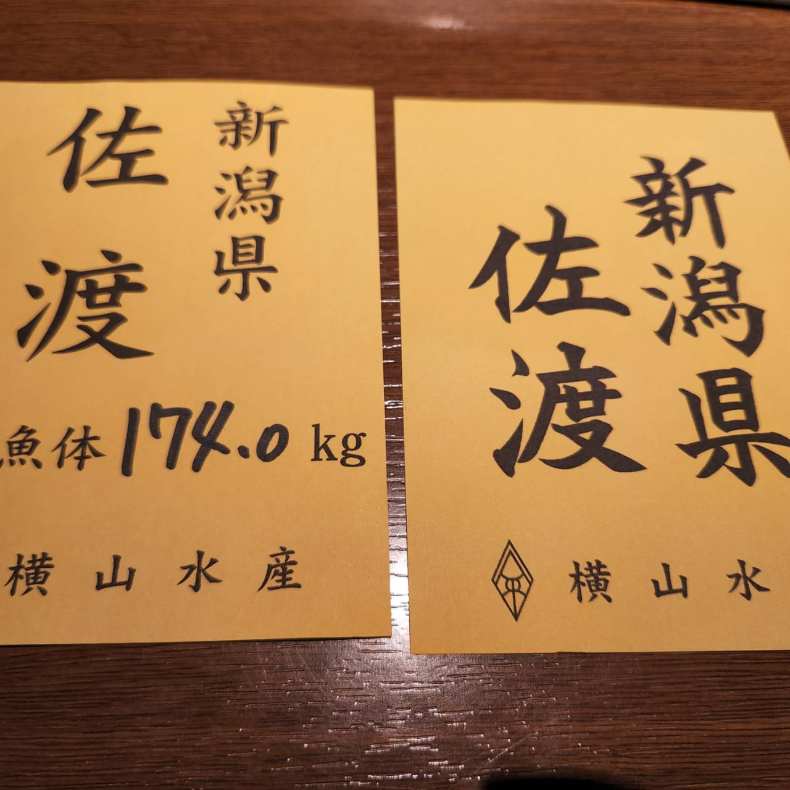 新潟県
佐渡
魚体 174.0 kg
横山水産
新潟県
佐渡
横山水